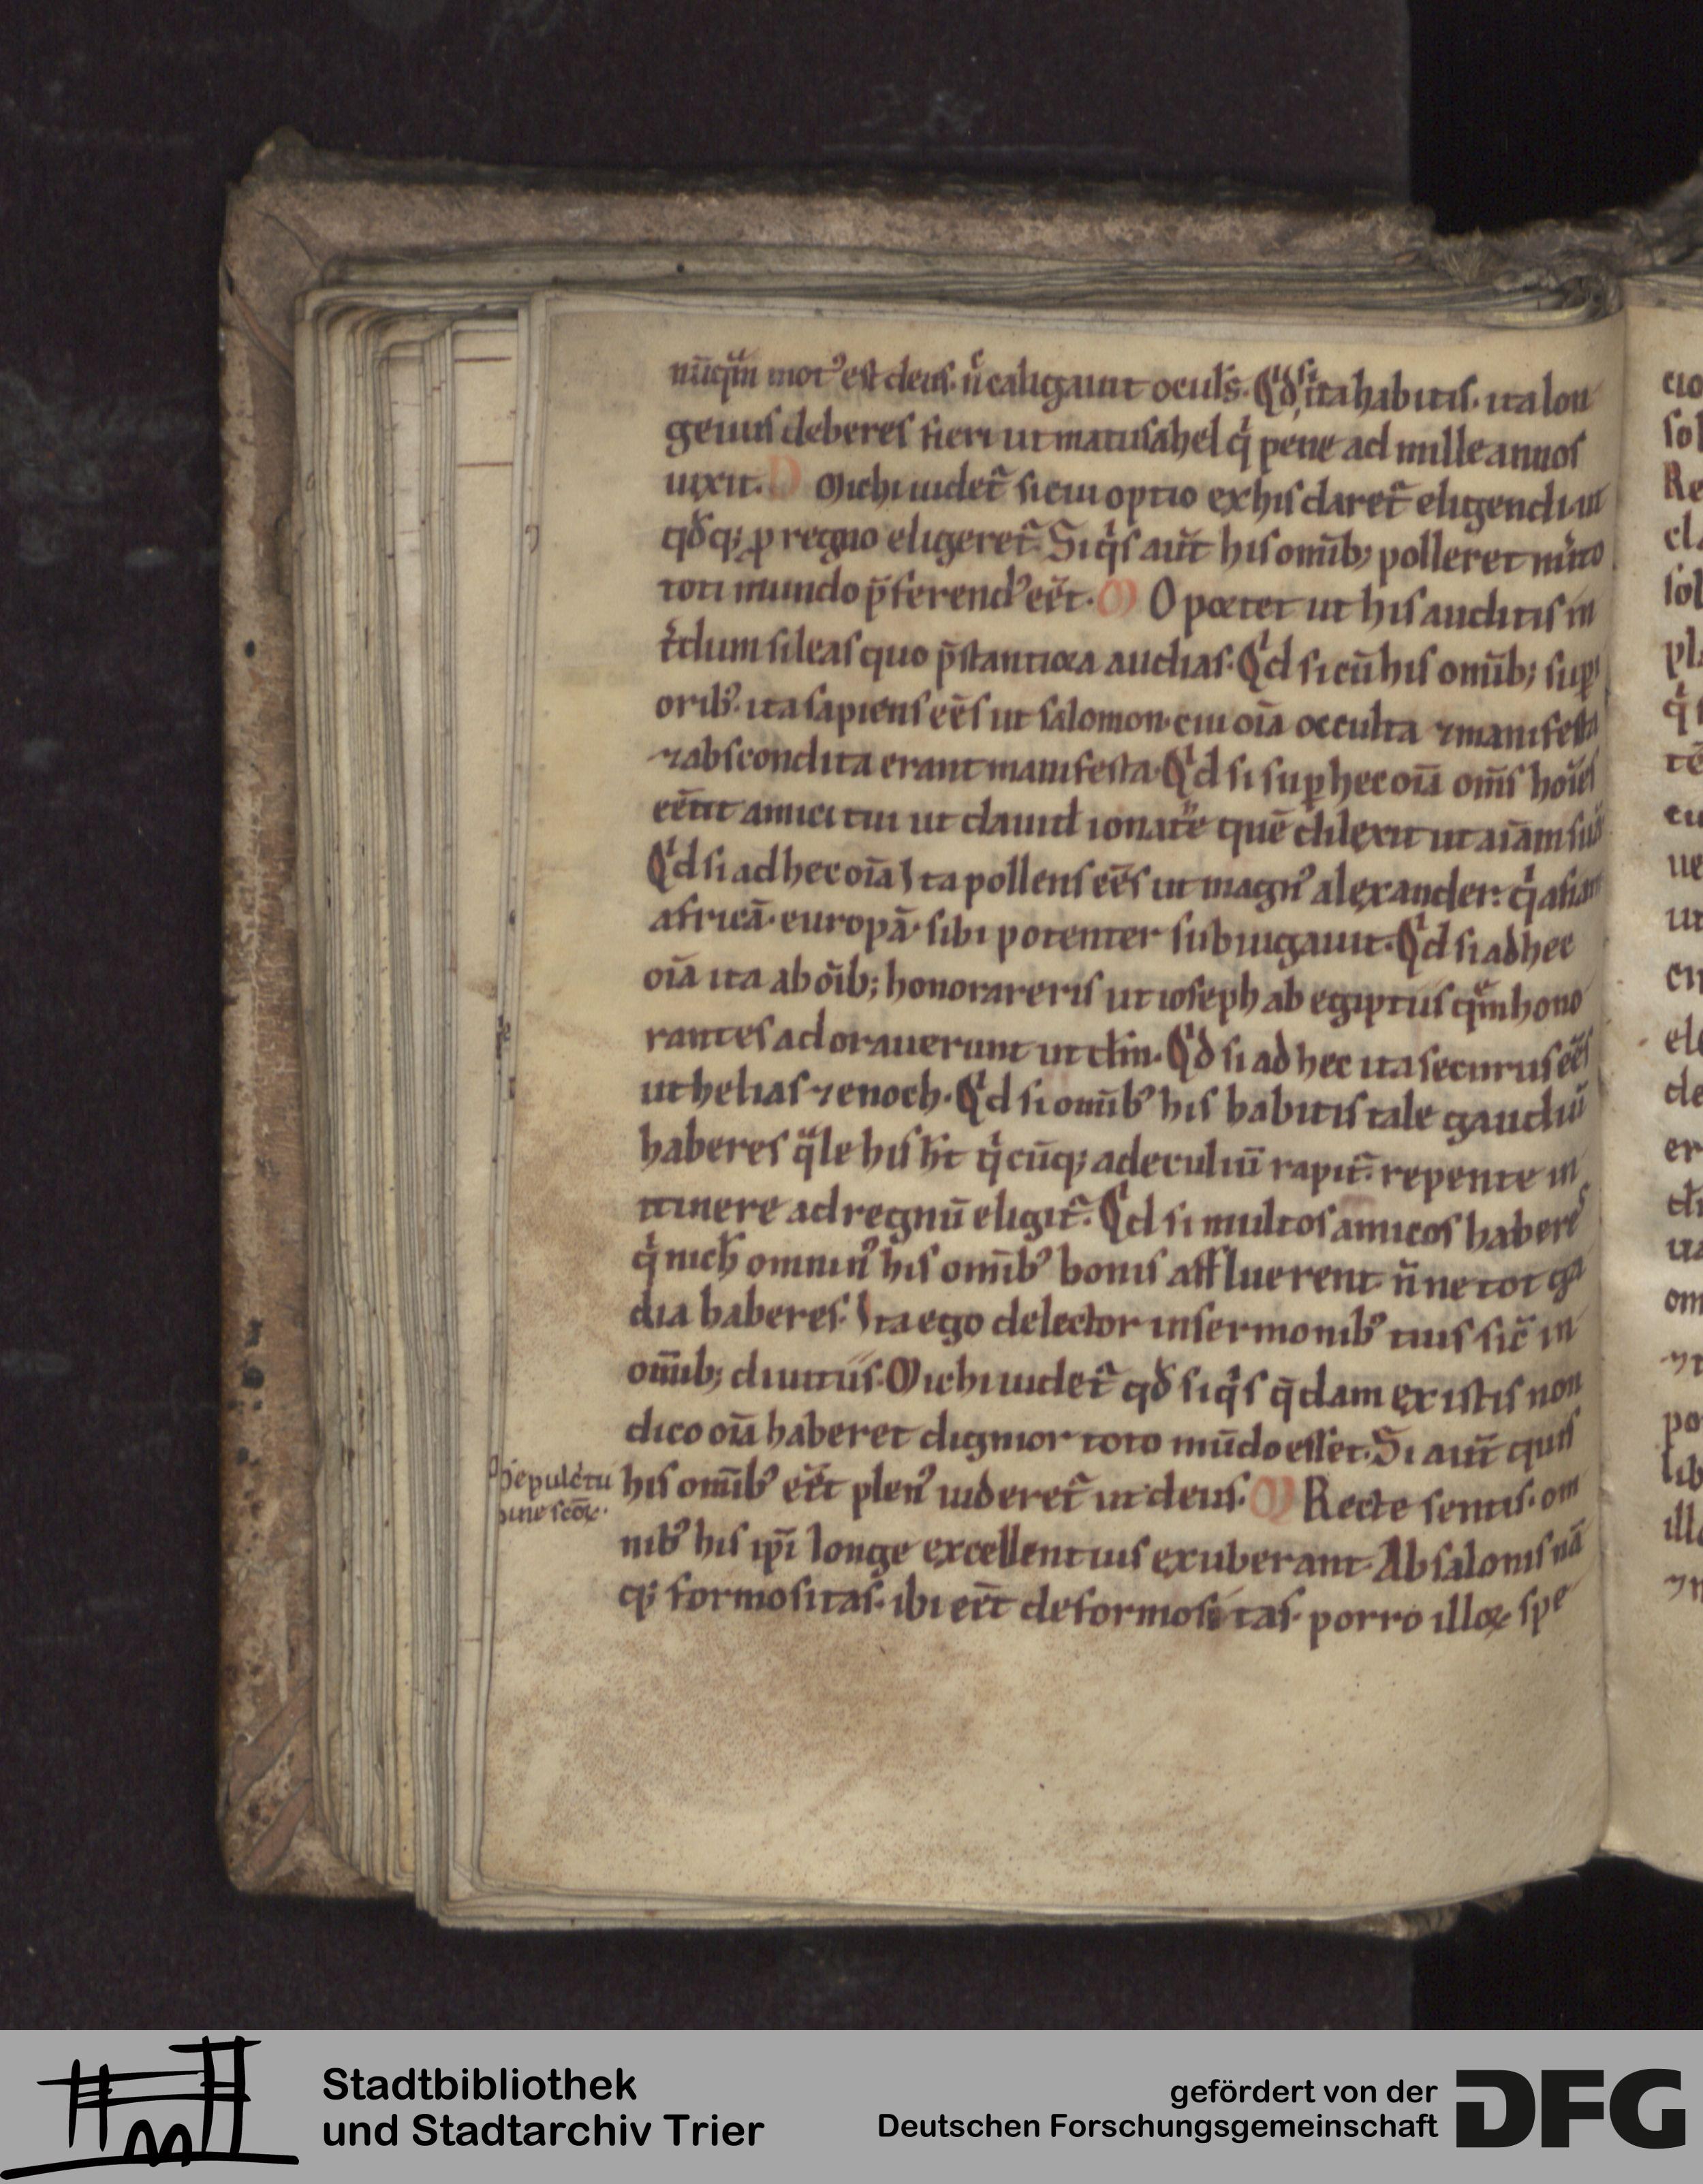 nūqͣm mot᷒ est dens. ń caligauıt oculꝰ. Qͥd si ita habitis. ita lon
geuus deberes fieri ut matusahel qͥ pene ad mille annos
uixit. D Michi uidet̃ si cui optio ex his daret̃ eligendi ut
qđq; p̱ regno eligeret̃. Siqͥs aut̄ his omīb; polleret mͥto
toti mundo p̄ferend᷒ eēt. M Oportet ut his auditis in
t̾dum sileas quo p̄stantiora audias. Qͥd si cū his omīb; supi
orib᷒. ita sapiens eēs ut salomon. cui oīa occulta ⁊ manifesta
⁊ abscondita erant manifesta. Qͥd si sup hec oīa om̄s hoīes
eēnt amici tui ut dauid ionathe quē dilexit ut aīam suā
Qͥd si ad hec oīa Ita pollens eēs ut magn᷒ alexander: qͥ asiam
africā. europā. sibi potenter subiugauit. Qͥd si ad hec
oīa ita ab oīb; honorareris ut ioseph ab egiptiis qͤm hono
rantes adorauerunt ut dm̄. Qͥđ si ad hec ita securus eēs
ut helias ⁊ enoch. Qͥd si omīb᷒ his habitis tale gaudiū
haberes qͣle his ht̄ qͥcūq; ad eculiū rapit̃. repente in
itinere ad regnū eligit̃. Qͥd si multos amicos haberes
qͥ nich̄ omin᷒ his omīb᷒ bonis affluerent. n̄ne tot ga
dia haberes. Ita ego delector in sermonib᷒ tuis sic̄ in
om̄ib; diuitiis. Michi uidet̃ qđ siqͥs q̄dam ex istis non
dico oīa haberet dignior toto mūdo esset. Si aut̄ quis
his om̄ib᷒ eēt plen᷒ uideret̃ ut deus. M Recte sentis. om
nib᷒ his ip̄i longe excellentius exuberant. Absalonis nā
q; formositas. ibi eēt deformositas. porro illoꝝ spe